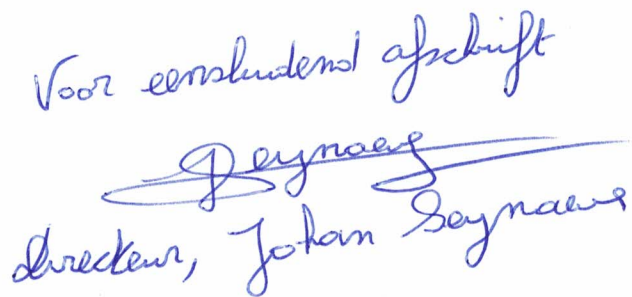 Voor eensluidend afschrift
Seynaeve
directeur, Johan Seynaeve